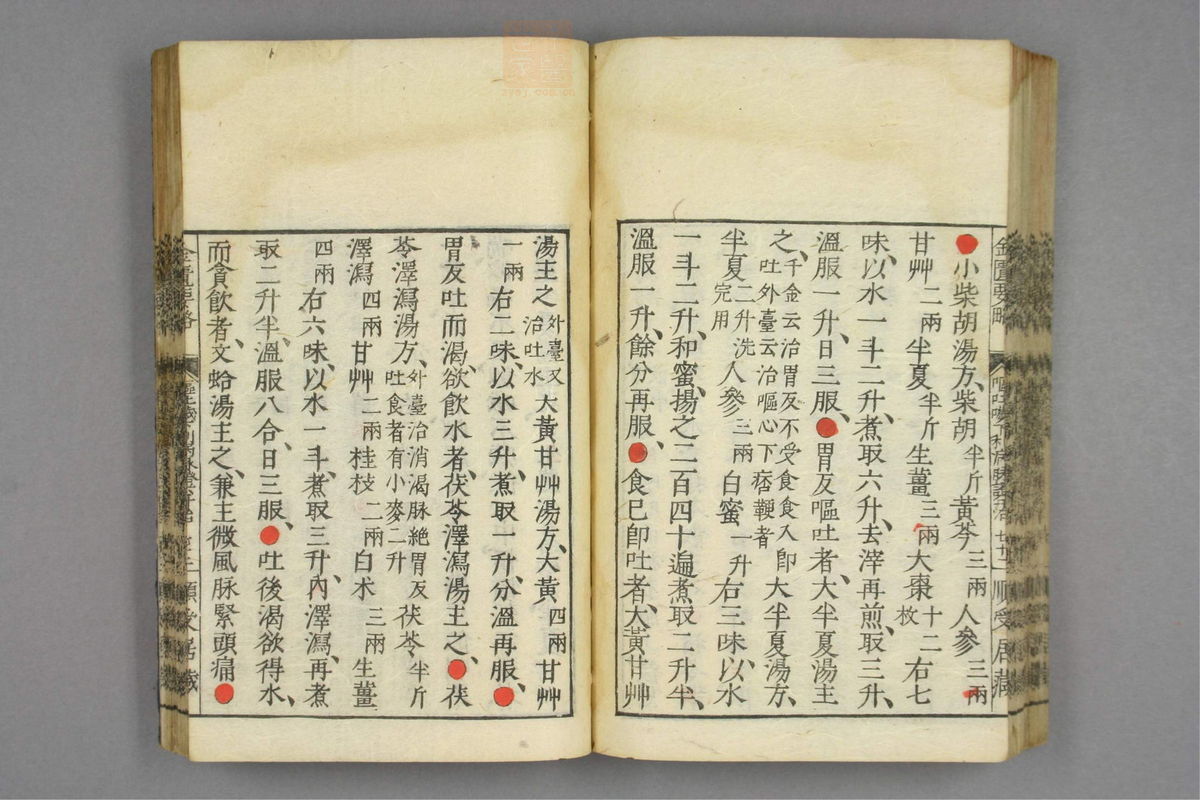 小柴胡湯方、柴胡半斤黃芩三兩人參三兩
甘艸二兩半夏半斤生薑三兩大棗十二枚右七
味、以水一斗二升、煮取六升、去滓再煎、取三升、
溫服一升、日三服、胃反嘔吐者、大半夏湯主
之、千金云治胃反不受食食入卽吐外臺云治嘔心下痞鞕者大半夏湯方、
半夏二升洗完用人參三兩白蜜一升右三味、以水
一斗二升、和蜜、揚之二百四十遍煮取二升半、
溫服一升、餘分再服、食已卽吐者、大黃甘艸
湯主之外臺又治吐水大黃甘艸湯方、大黃四兩甘艸
一兩右二味、以水三升、煮取一升、分溫再服、
胃反吐而渴、欲飲水者、茯苓澤瀉湯主之、茯
苓澤瀉湯方、外臺治消渴脉絕胃反吐食者有小麥二升茯苓半斤
澤瀉四兩甘艸二兩桂枝二兩白朮三兩生薑
四兩右六味、以水一斗、煮取三升、內澤瀉、再煮
取二升半、溫服八合、日三服、吐後渴欲得水、
而貪飲者、文蛤湯主之、兼主微風脉緊頭痛
金匱要略
順受居藏